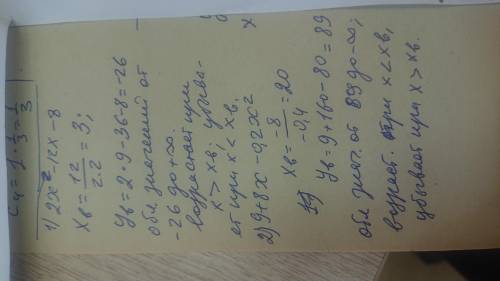 C₄ = 1 · 1/3 = 1/3
1) 2x² - 12x - 8
xв = 12/2·2 = 3;
yв = 2·9 - 36 - 8 = -26
обл значений от
-26 до +∞.
возрастает при
x > xв; убыва-
ет при x < xв.
2) 9 + 8x - 0,2x²
xв = -8/-0,4 = 20
yв = 9 + 160 - 80 = 89
обл знач. от 89 до -∞;
возраст. при x < xв,
убывает при x > xв.